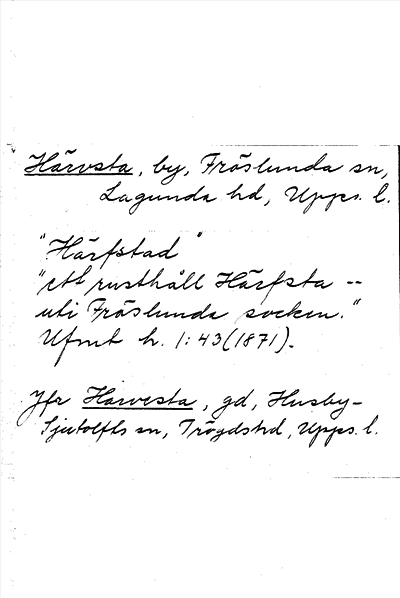 Härvsta, by, Fröslunda sn,
Lagunda hd, Upps. l.
"Härfstad"
"ett rusthåll Härfsta --
uti Fröslunda socken."
Ufmt h. 1:43 (1871).
Jfr Harvesta, gd, Husby-
Sjutolfts sn, Trögds hd, Upps. l.